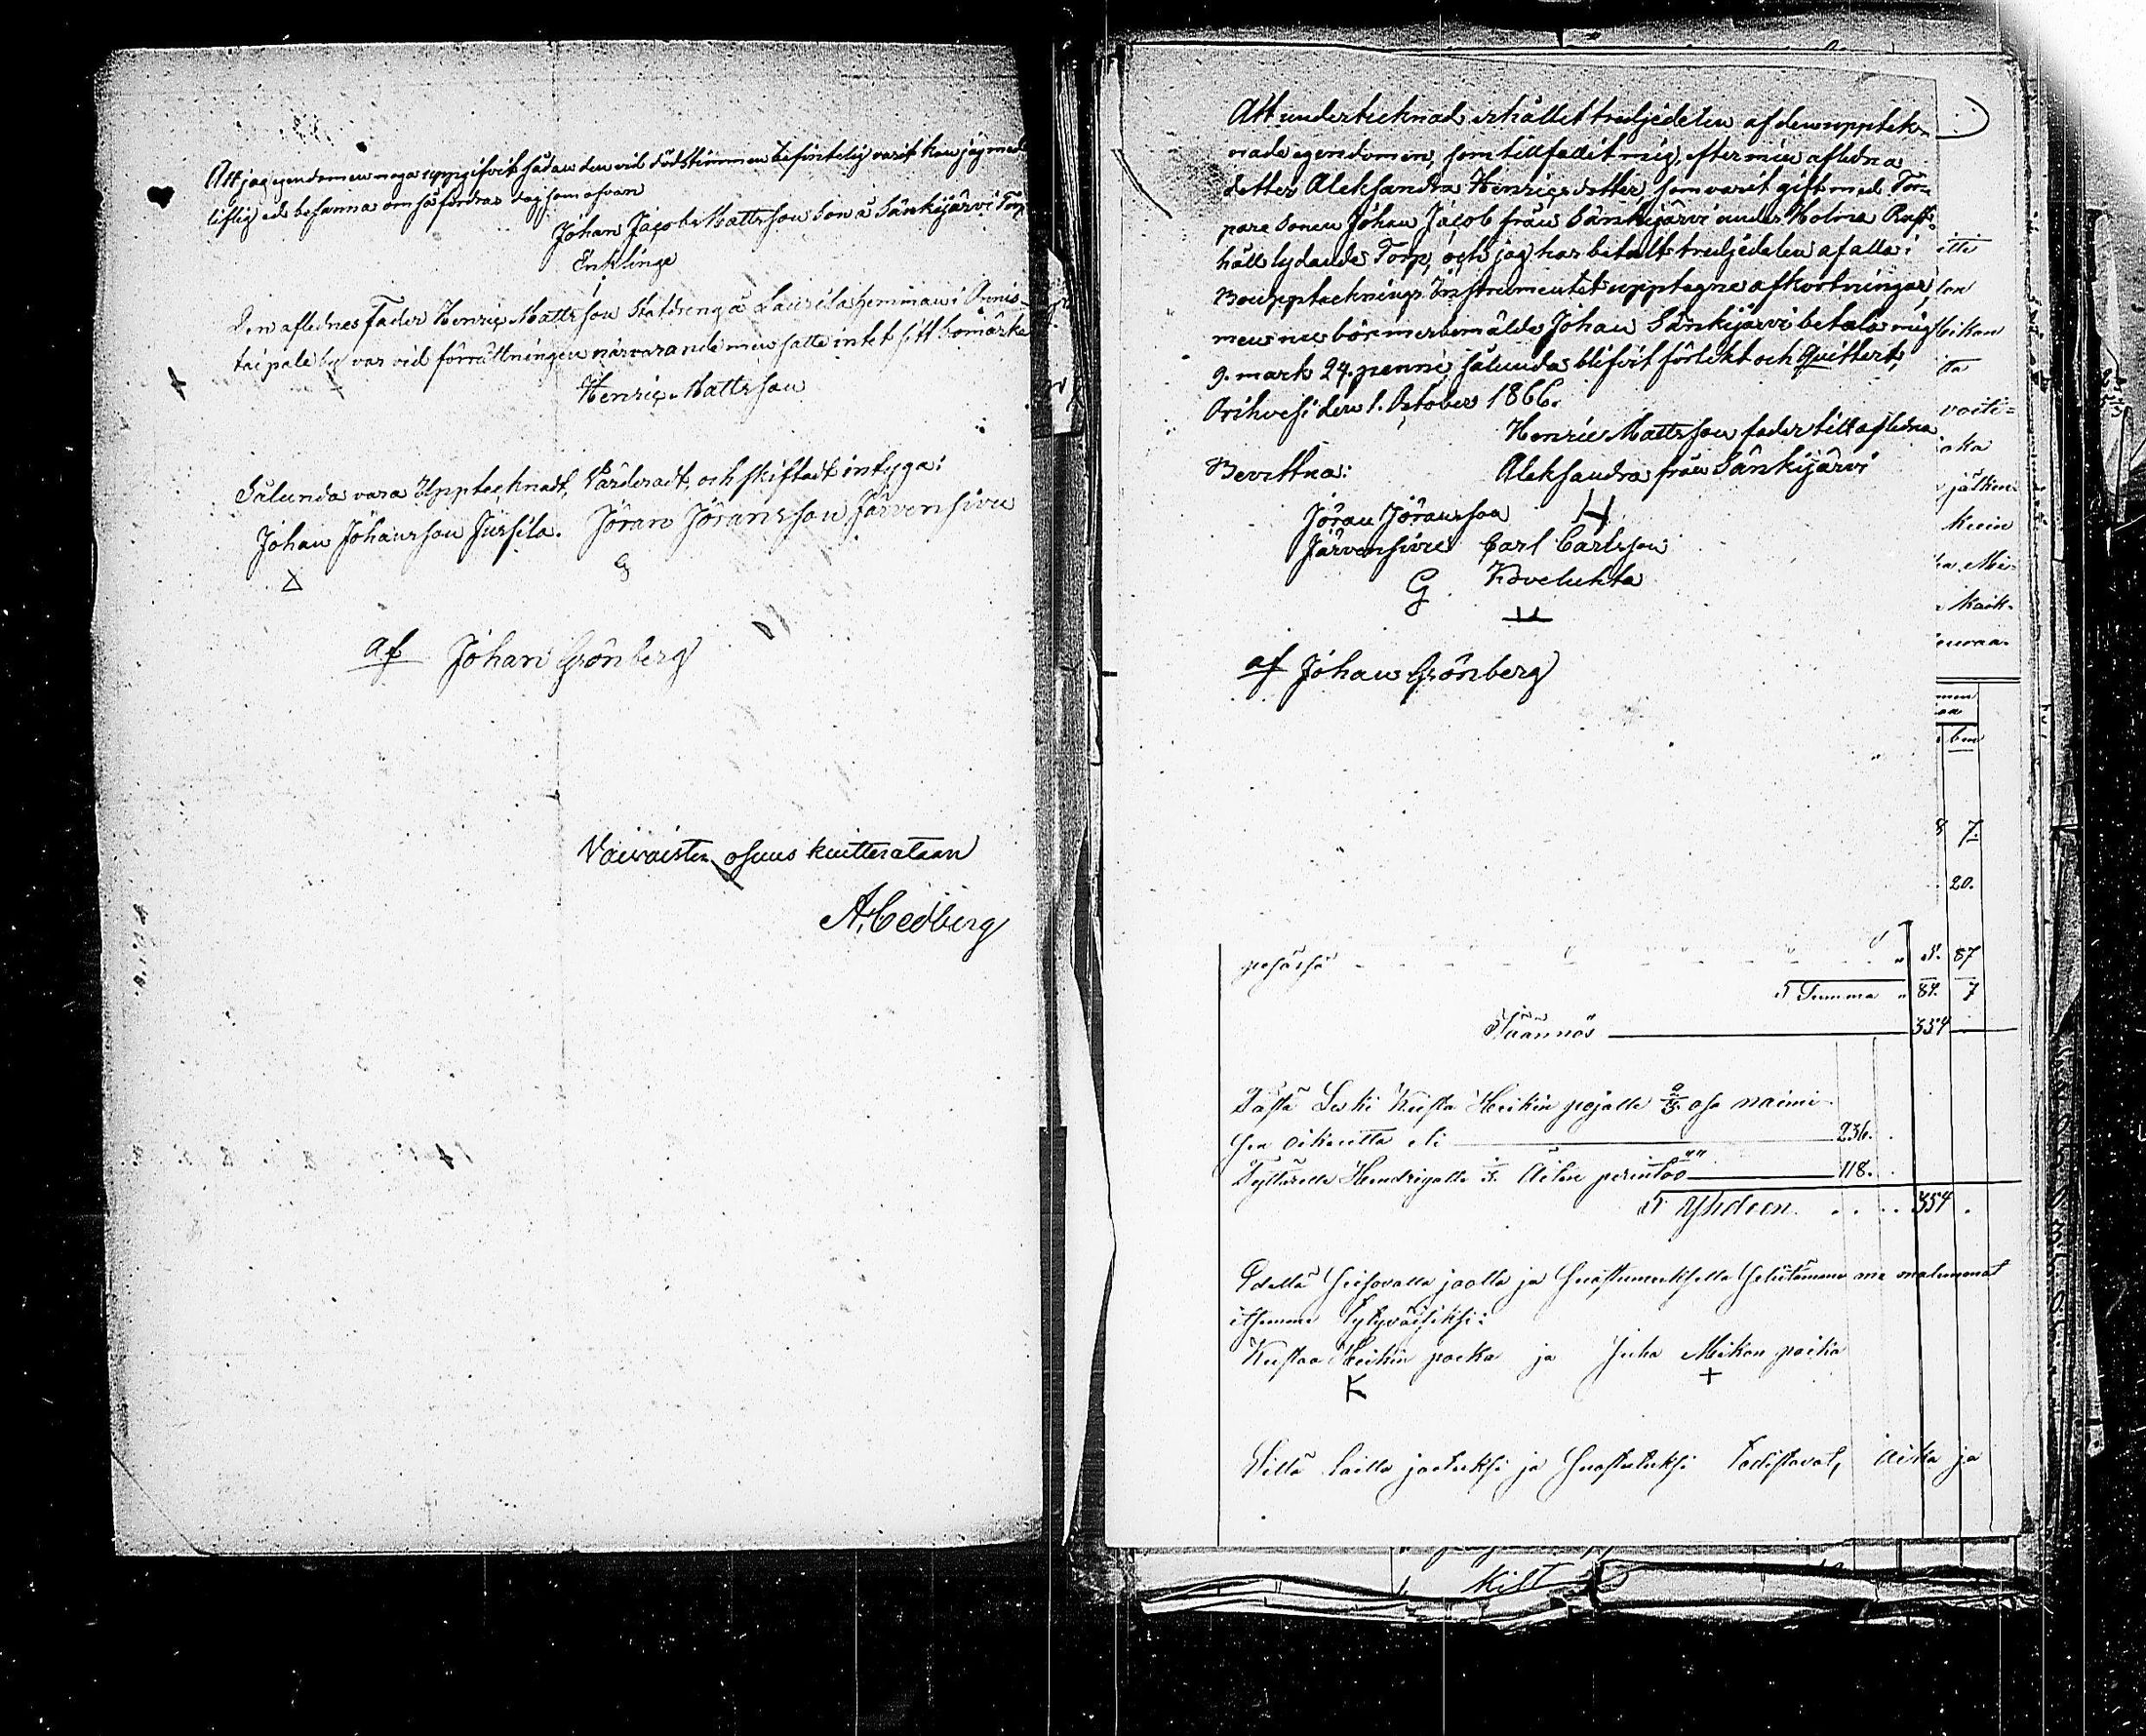 Att jag egendomen noga uppgifvit sådan den vid dödstimmen befintelig varit kan jag med
liflig ed besanna om så fordras dag som ofvan
Johan Jacob Mattsson Son å Sänkijärvi Torp
Enklinge
Den aflednes Fader Henric Mattsson Statdreng å Laurila hemman i Onnis-
taipale by var vid förrättningen närvarande men satte intet sitt bomärke
Henric Mattsson
Sålunda vara Upptecknadt, Värderadt, och skiftadt intyga:
Johan Johansson Jussila. Jöran Jöransson Järvensivu
G
af Johan Grönberg
Vaivaisten osuus kuitterataan
A. Cedberg
Att undertecknad erhållit tredjedelen af den uppteck-
nade egendomen, som tillfallit mig, efter min afledna
dotter Aleksandra Henricsdotter, som varit gift med Tor-
pare Sonen Johan Jacob från Sänkijärvi under Holma Rust-
håll lydande Torp, och jag har betalt tredjedelen af alla i
Bouppteckningz Instrumentet upptagne afkortningar,
men nu bör merbemälde Johan Sänkijärvi betala mig
9. mark 24. penni, sålunda blifvit förlikt och Quittert,
Orihvesi den 1. October 1866.
Henric Mattsson fader till afledna
Bevittna: Aleksandra från Sänkijärvi
Jöran Jöransson H
Järvensivu Carl Carlsson
G Kovelahta
af Johan Grönberg
pesässä 87
Summa 84. 7
Jäännös 354
Tästä Leski Kusta Heikin pojalle 2/3 osa naimi-
sen oikeutta eli 236.
Tyttärelle Hendrigalle 1/3 Äitin perintöö 118.
Yhdeen 354
Edellä seisovalla jaolla ja suostumuksella selitämme me molemmat
itsemme Tytyväiseksi:
Kustaa Heikin poika ja Juha Mikon poika
K +
Sillä lailla jaetuksi ja suostutuksi Todistavat, Aika ja